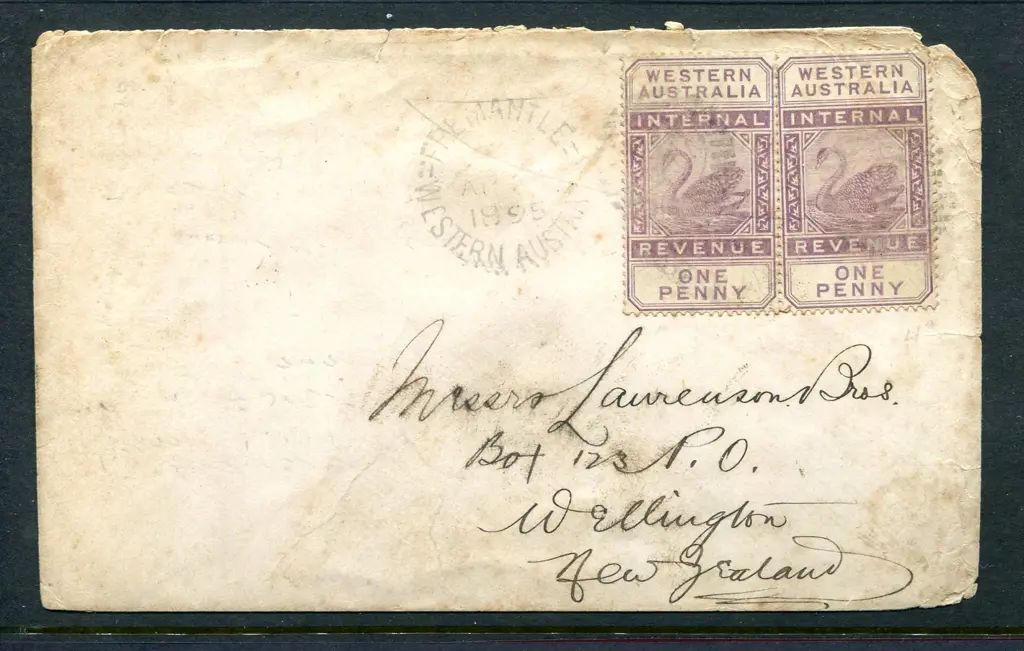 WESTERN AUSTRALIA
INTERNAL
REVENUE
ONE PENNY
WESTERN AUSTRALIA
INTERNAL
REVENUE
ONE PENNY
FREMANTLE
1895
WESTERN AUSTRA
Messrs Laurenson Bros.
Box 123 P.O.
Wellington
New Zealand